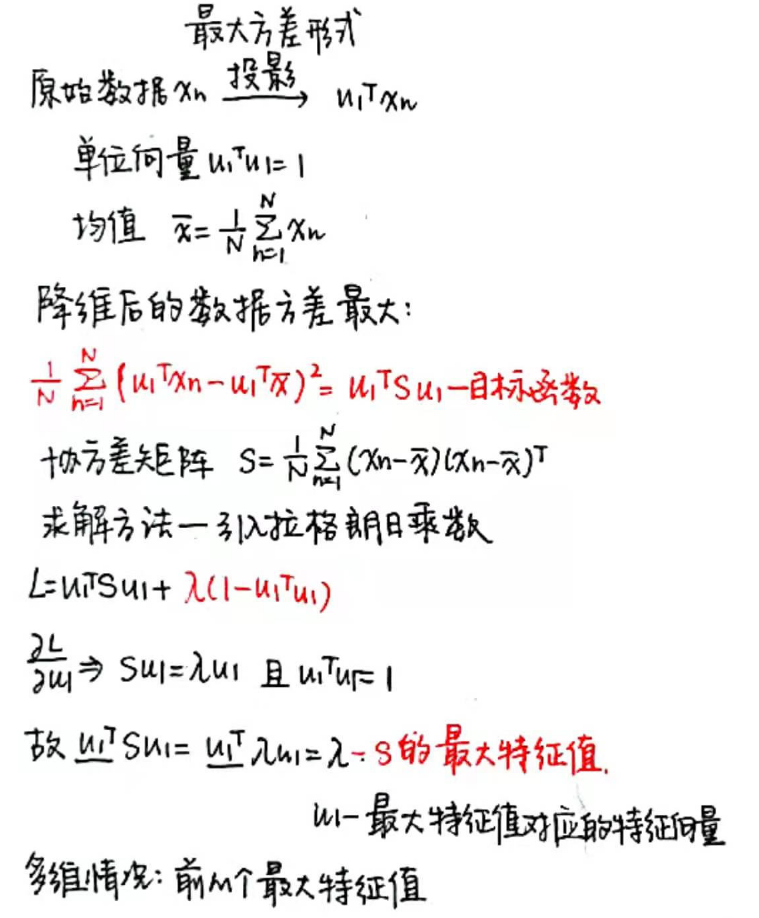 最大方差形式
原始数据 xₙ —投影→ u₁ᵀxₙ
单位向量 u₁ᵀu₁=1
均值 x̄= 1/N ∑ₙ₌₁ᴺ xₙ
降维后的数据方差最大:
1/N ∑ₙ₌₁ᴺ (u₁ᵀxₙ-u₁ᵀx̄)²= u₁ᵀSu₁—目标函数
协方差矩阵 S= 1/N ∑ₙ₌₁ᴺ (xₙ-x̄)(xₙ-x̄)ᵀ
求解方法—引入拉格朗日乘数
L=u₁ᵀSu₁+ λ(1-u₁ᵀu₁)
∂L/∂u₁ ⇒ Su₁=λu₁ 且 u₁ᵀu₁=1
故 u₁ᵀSu₁= u₁ᵀλu₁=λ-S的最大特征值.
u₁-最大特征值对应的特征向量
多维情况: 前M个最大特征值